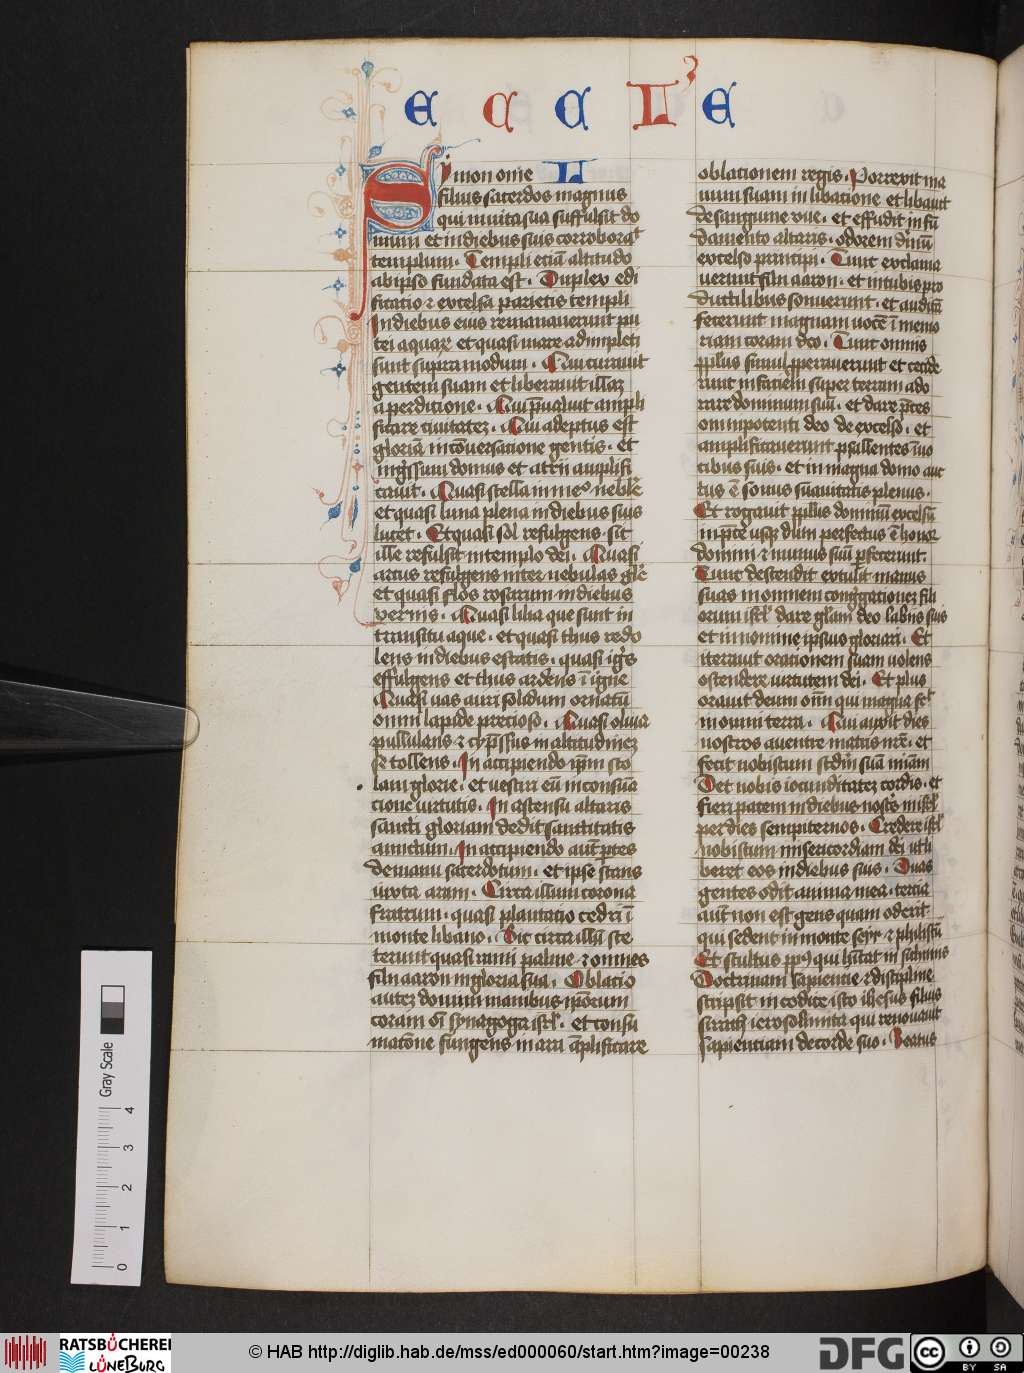 E C C L' E
Symon onie L
filius sacerdos magnus
qui in uita sua suffulsit do
mum et in diebus suis corrobora͛t
templum . Templi etiā altitudo
ab ip̄o fundata est . Duplex edi
ficatio ⁊ excelsa parietis templi
In diebus eius remanauerunt pu
tei aquarꝫ et quasi mare adimpleti
sunt supra modum . Qui curauit
gentem suam et liberauit illaꝫ
a perditione . Qui p̄ualuit ampli
ficare ciuitateꝫ . Qui adeptus est
gloriā in cōuersatione gentis . et
ingressum domus et atrii amplifi
cauit . Quasi stella in meᵒ neble
et quasi luna plena in diebus suis
lucet . Et quasi sol refulgens . sic
ille refulsit in templo dei . Quasi
arcus refulgens inter nebulas gl̄e
et quasi flos rosarum in diebus
vernis . Quasi lilia que sunt in
transitu aque . et quasi thus redo
lens in diebus estatis . quasi iḡs
effulgens et thus ardēns ī igne
Quasi uas auri solidum ornatū
omni lapide precioso . Quasi oliua
pullulans ⁊ cyp̄ssus in altitudineꝫ
se tollens . In accipiendo ip̄m sto
lam glorie . et vestiri eū in consūa
cione uirtutis . In ascensu altaris
sancti gloriam dedit sanctitatis
amictum . In accipiendo aut̄ ptes
de manu sacerdotum . et ipse stans
iuxta aram . Circa illum corona
fratrum . quasi plantatio cedri ī
monte libano . Sic circa illū ste
terunt quasi rami palme . ⁊ omnes
filii aaron in gloria sua . Oblatio
auteꝫ domini in manibus ip̄orum
coram oī synagoga isrl̄ . et consū
matōne fungens in ara āplificare
oblationem regis . Porrexit ma
num suam in libatione et libauit
de sanguine uue . et effudit in fū
damento altaris . odorem diuinū
excelso principi . Tunc exclama
uerunt filii aaron . et in tubis pro
ductilibus sonuerunt . et auditā
fecerunt magnam uocē ī memo
riam coram deo . Tunc omnis
pp̄lus simul pperauerunt et cecide
runt in faciem super terram ado
rare dominum suū . et dare p̄ces
omnipotenti deo de excelso . et
amplificauerunt psallentes ī uo
cibus suis . et in magna domo auc
tus ē sonus suauitatis plenus .
Et rogauit pp̄lus dominū excelsū
in p̄ce usqꝫ dum perfectus ē honor
domini ⁊ munus suū p̄fecerunt .
Tunc descendit extulit manus
suas in omnem congregationeꝫ fili
orum isrl̄ dare gl̄iam deo labiis suis
et in nomine ipsius gloriari . Et
iterauit orationem suam uolens
ostendere uirtutem dei . Et plus
orauit deum oīm qui magna fec̄
in omni terra . Qui auxit dies
nostros a uentre matris nr̄e . et
fecit nobiscum scdm̄ suā mīam
Det nobis iocunditateꝫ cordis . et
fieri pacem in diebus nostris in isrl̄
per dies sempiternos . Credere isrl̄
nobiscum misericordiam dei ut li
beret eos in diebus suis . Duas
gentes odit anima mea . tercia
aut̄ non est gens quam oderit .
qui sedent in monte seyr . ⁊ philistiī
Et stultus ppꝰ qui hītat in sichimis
Doctrinam sapiencie ⁊ discipline
scripsit in codice isto ihesus filius
sirach ierosolimita qui renouauit
sapienciam de corde suo . Beatus
Gray Scale
0 1 2 3 4
RATSBÜCHEREI
LÜNEBURG
© HAB http://diglib.hab.de/mss/ed000060/start.htm?image=00238
DFG
cc BY SA